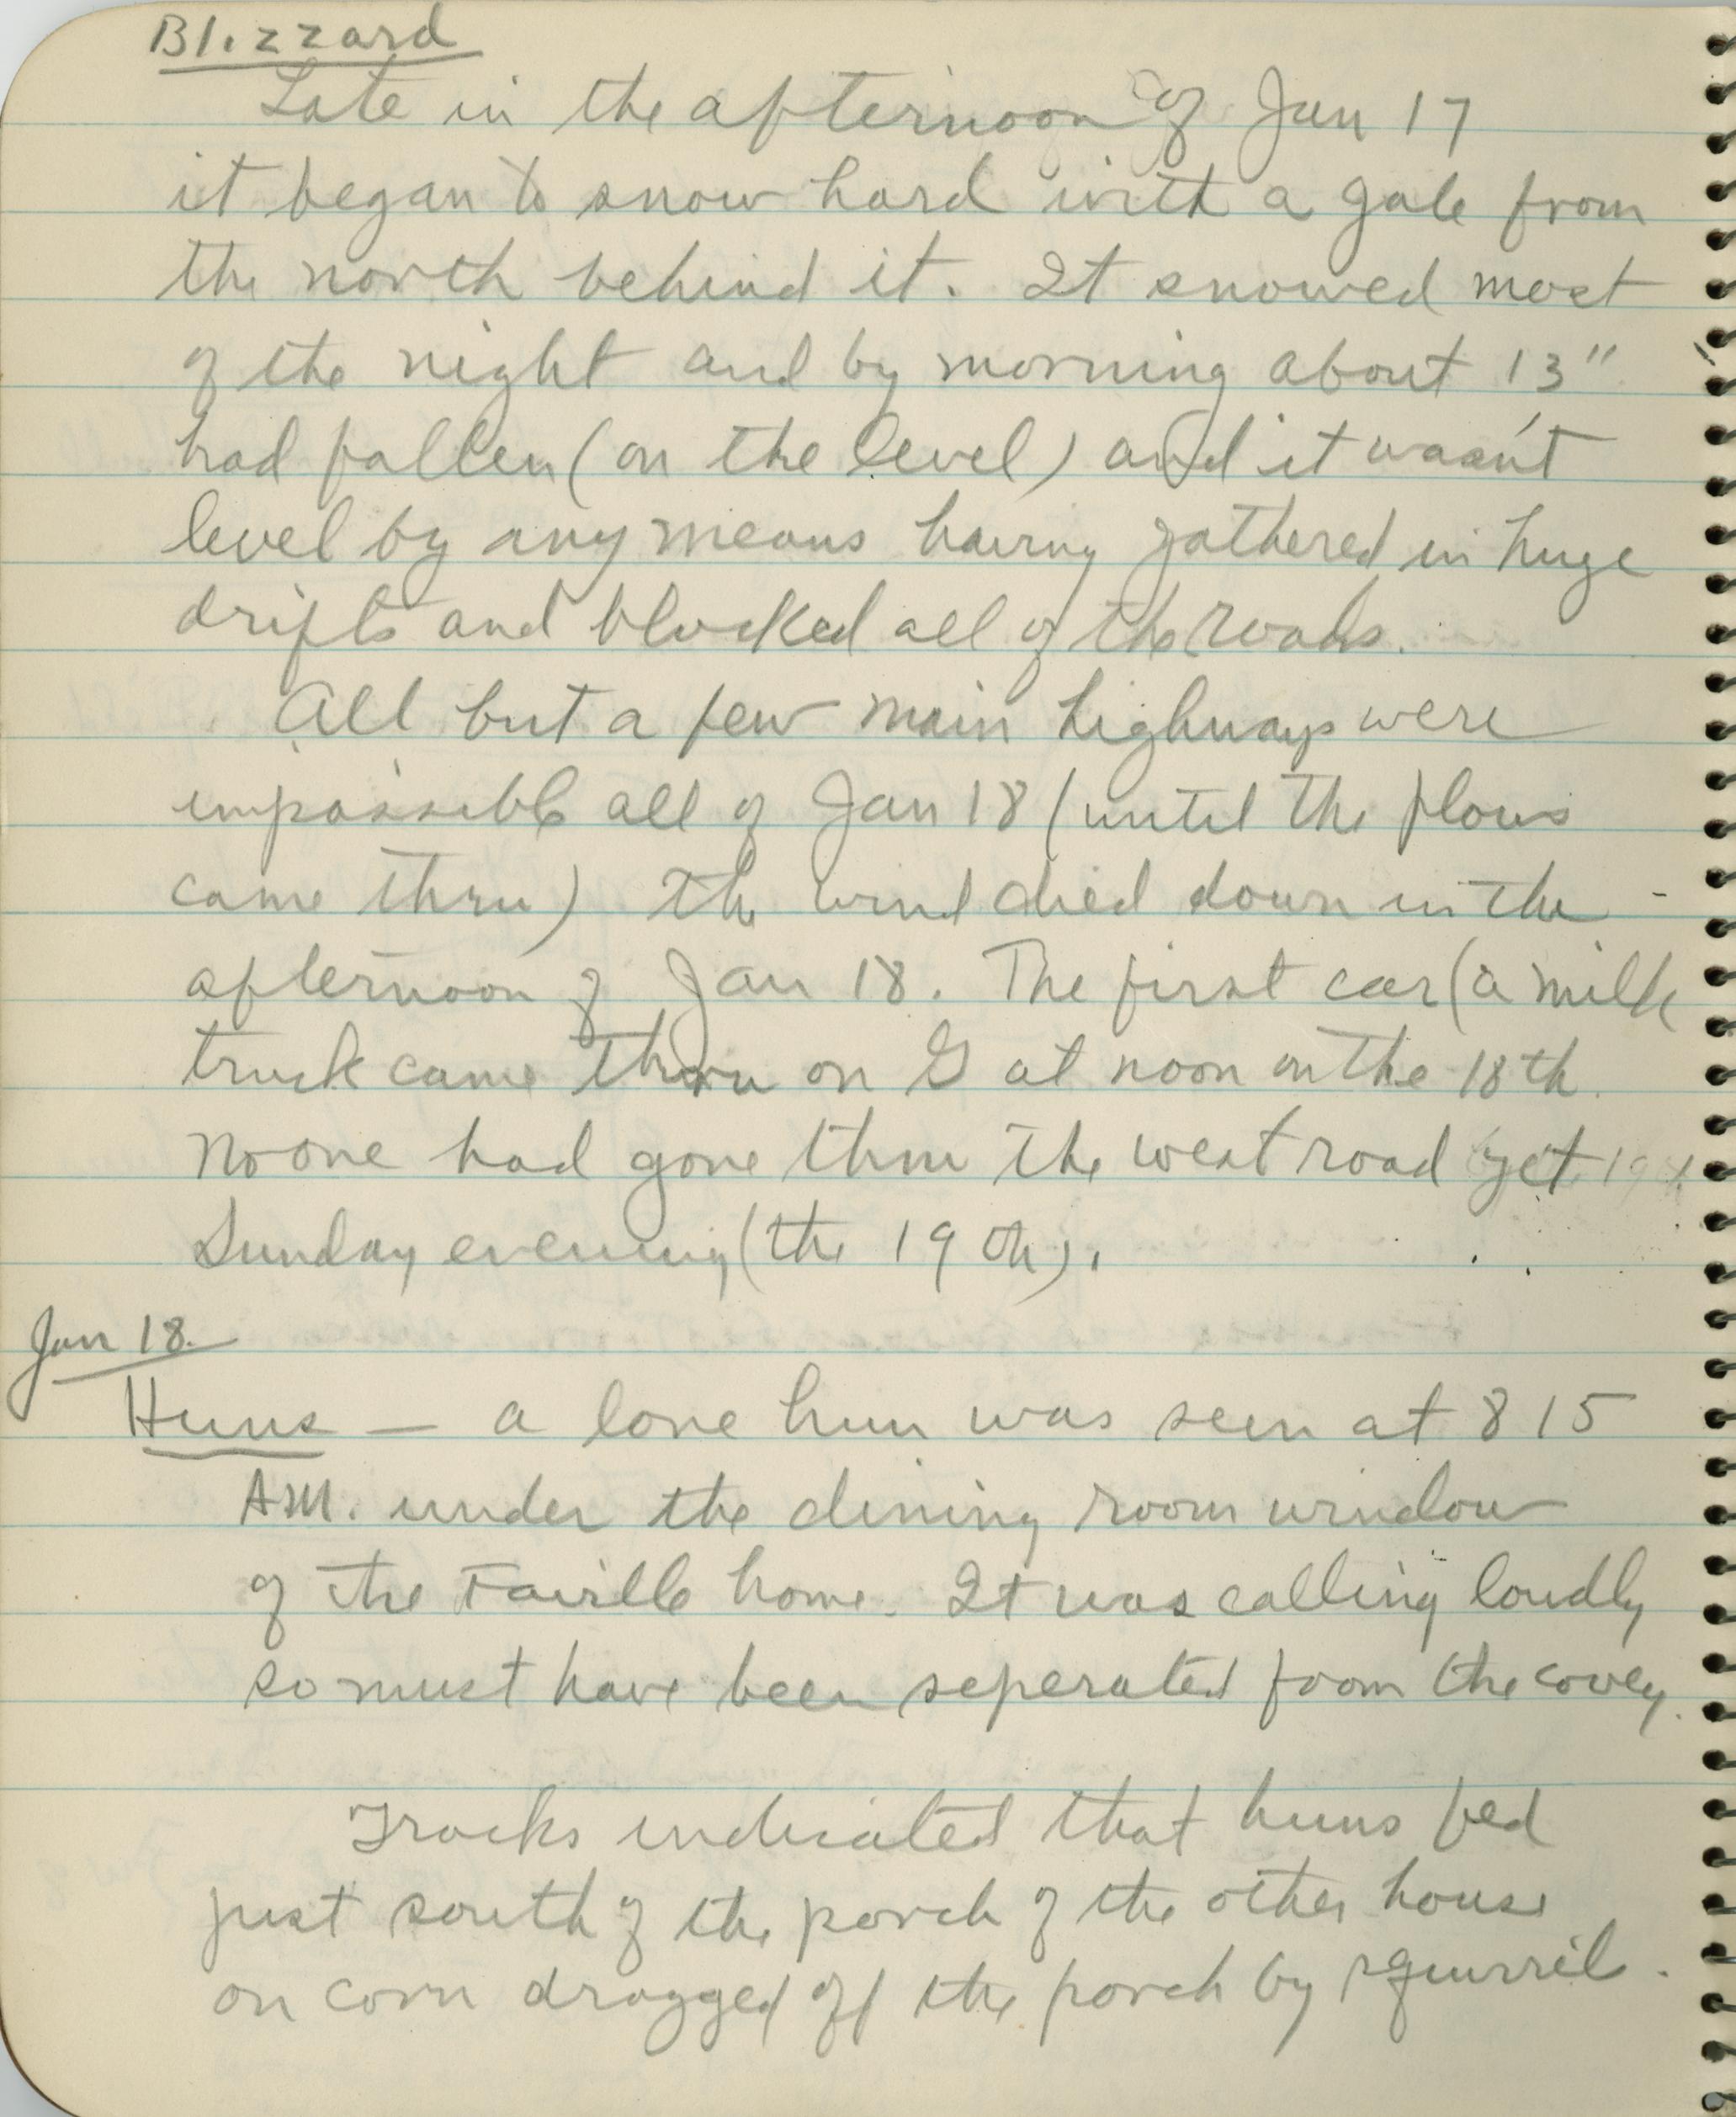 Blizzard
Late in the afternoon of Jan 17
it began to snow hard with a gale from
the north behind it. It snowed most
of the night and by morning about 13"
had fallen (on the level) and it wasn't
level by any means having gathered in huge
drifts and blocked all of the roads.
All but a few main highways were
impassible all of Jan 18 (until the plows
came thru) The wind died down in the
afternoon of Jan 18. The first car (a milk
truck came thru on G at noon on the 18th.
No one had gone thru the west road yet
Sunday evening (the 19th).
Jan 18.
Huns — a lone hun was seen at 8 15
AM. under the dining room window
of the home. It was calling loudly
so must have been seperated from the covey.
Tracks indicated that huns fed
just south of the porch of the other house
on corn dragged off the porch by squirrels.